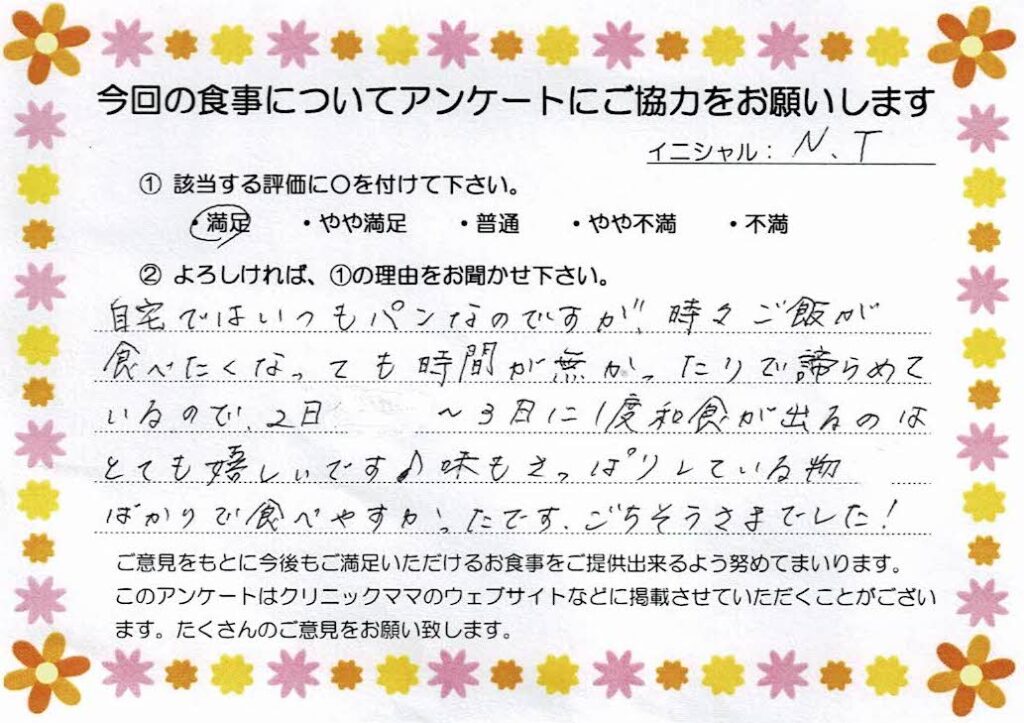 今回の食事についてアンケートにご協力をお願いします
イニシャル： N.T
① 該当する評価に〇を付けて下さい。
・満足 ・やや満足 ・普通 ・やや不満 ・不満
② よろしければ、①の理由をお聞かせ下さい。
自宅ではいつもパンなのですが、時々ご飯が
食べたくなっても時間が無かったりで諦らめて
いるので、2日 〜3日に1度和食が出るのは
とても嬉しいです♪味もさっぱりしている物
ばかりで食べやすかったです、ごちそうさまでした！
ご意見をもとに今後もご満足いただけるお食事をご提供出来るよう努めてまいります。
このアンケートはクリニックママのウェブサイトなどに掲載させていただくことがござい
ます。たくさんのご意見をお願い致します。